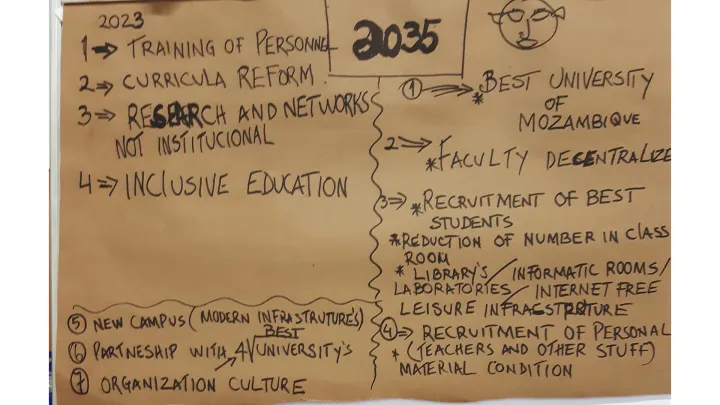 2023
1⇒ TRAINING OF PERSONNEL
2⇒ CURRICULA REFORM
3⇒ RESEARCH AND NETWORKS
NOT INSTITUCIONAL
4⇒ INCLUSIVE EDUCATION
2035
① ⇒ * BEST UNIVERSITY
OF
MOZAMBIQUE
2⇒
* FACULTY DECENTRALIZE
3⇒ * RECRUITMENT OF BEST
STUDENTS
* REDUCTION OF NUMBER IN CLASS
ROOM
* LIBRARY'S / INFORMATIC ROOMS/
LABORATORIES / INTERNET FREE
LEISURE INFRAESTRUTURE
④⇒ RECRUITMENT OF PERSONAL
* (TEACHERS AND OTHER STUFF)
MATERIAL CONDITION
⑤ NEW CAMPUS (MODERN INFRASTRUTURE'S)
BEST
⑥ PARTNESHIP WITH 4 UNIVERSITY'S
⑦ ORGANIZATION CULTURE